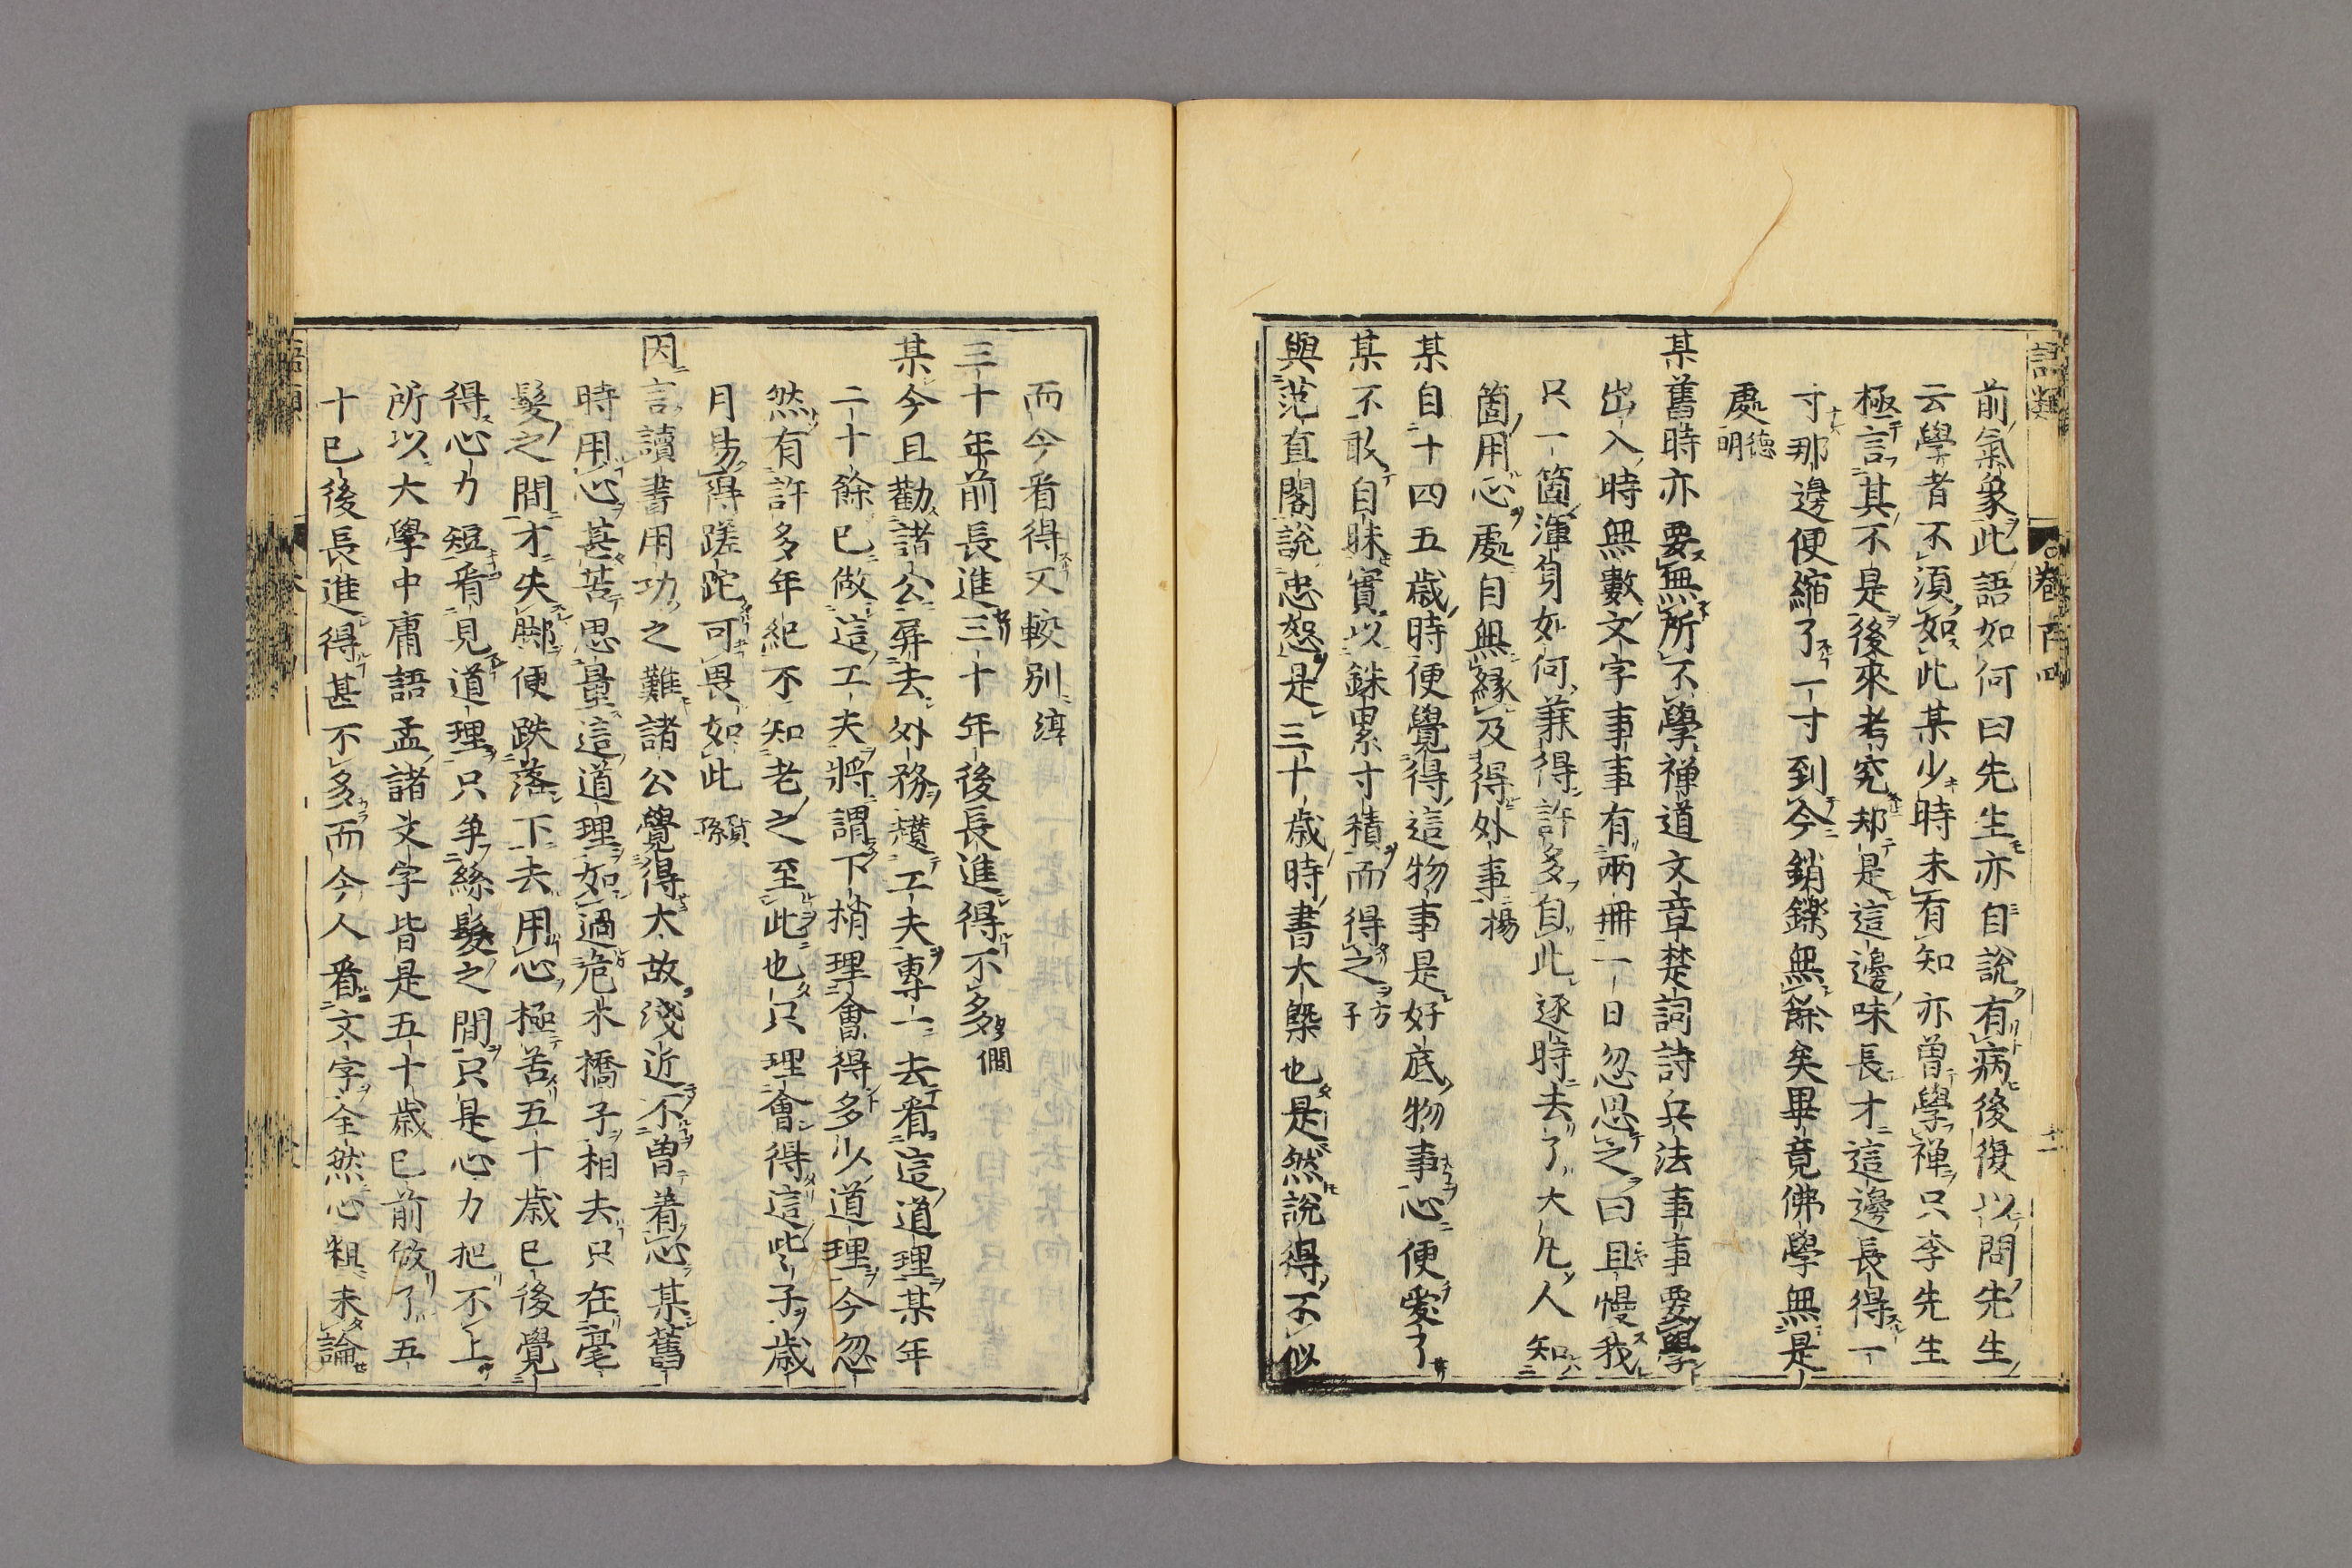 語類 卷百四
前氣象此語如何曰先生亦自說有病後復以問先生
云學者不須如此某少時未有知亦曾學禪只李先生
極言其不是後來考究却是這邊味長才這邊長得一
寸那邊便縮了一寸到今銷鑠無餘矣畢竟佛學無是
處德明
某舊時亦要無所不學禅道文章楚詞詩兵法事事要學
出入時無數文字事事有兩冊一日忽思之曰且慢我
只一箇渾身如何兼得許多自此逐時去了大凡人知
箇用心處自無縁及得外事揚
某自十四五歲時便覺得這物事是好底物事心便愛了
某不敢自昧實以銖累寸積而得之方子
與范直閣說忠恕是三十歲時書大槩也是然說得不似
而今看得又較別淳
三十年前長進三十年後長進得不多僩
某今且勸諸公屏去外務趲工夫專一去看這道理某年
二十餘已做這工夫將謂下梢理會得多少道理今忽
然有許多年紀不知老之至此也只理會得這些子歲
月易得蹉跎可畏如此賀孫
因言讀書用功之難諸公覺得大故淺近不曾著心某舊
時用心甚苦思量這道理如過危木橋子相去只在毫
髮之間才失脚便跌落下去用心極苦五十歲已後覺
得心力短看見道理只爭絲髮之間只是心力把不上
所以大學中庸語孟諸文字皆是五十歲已前做了五
十已後長進得甚不多而今人看文字全然心粗未論